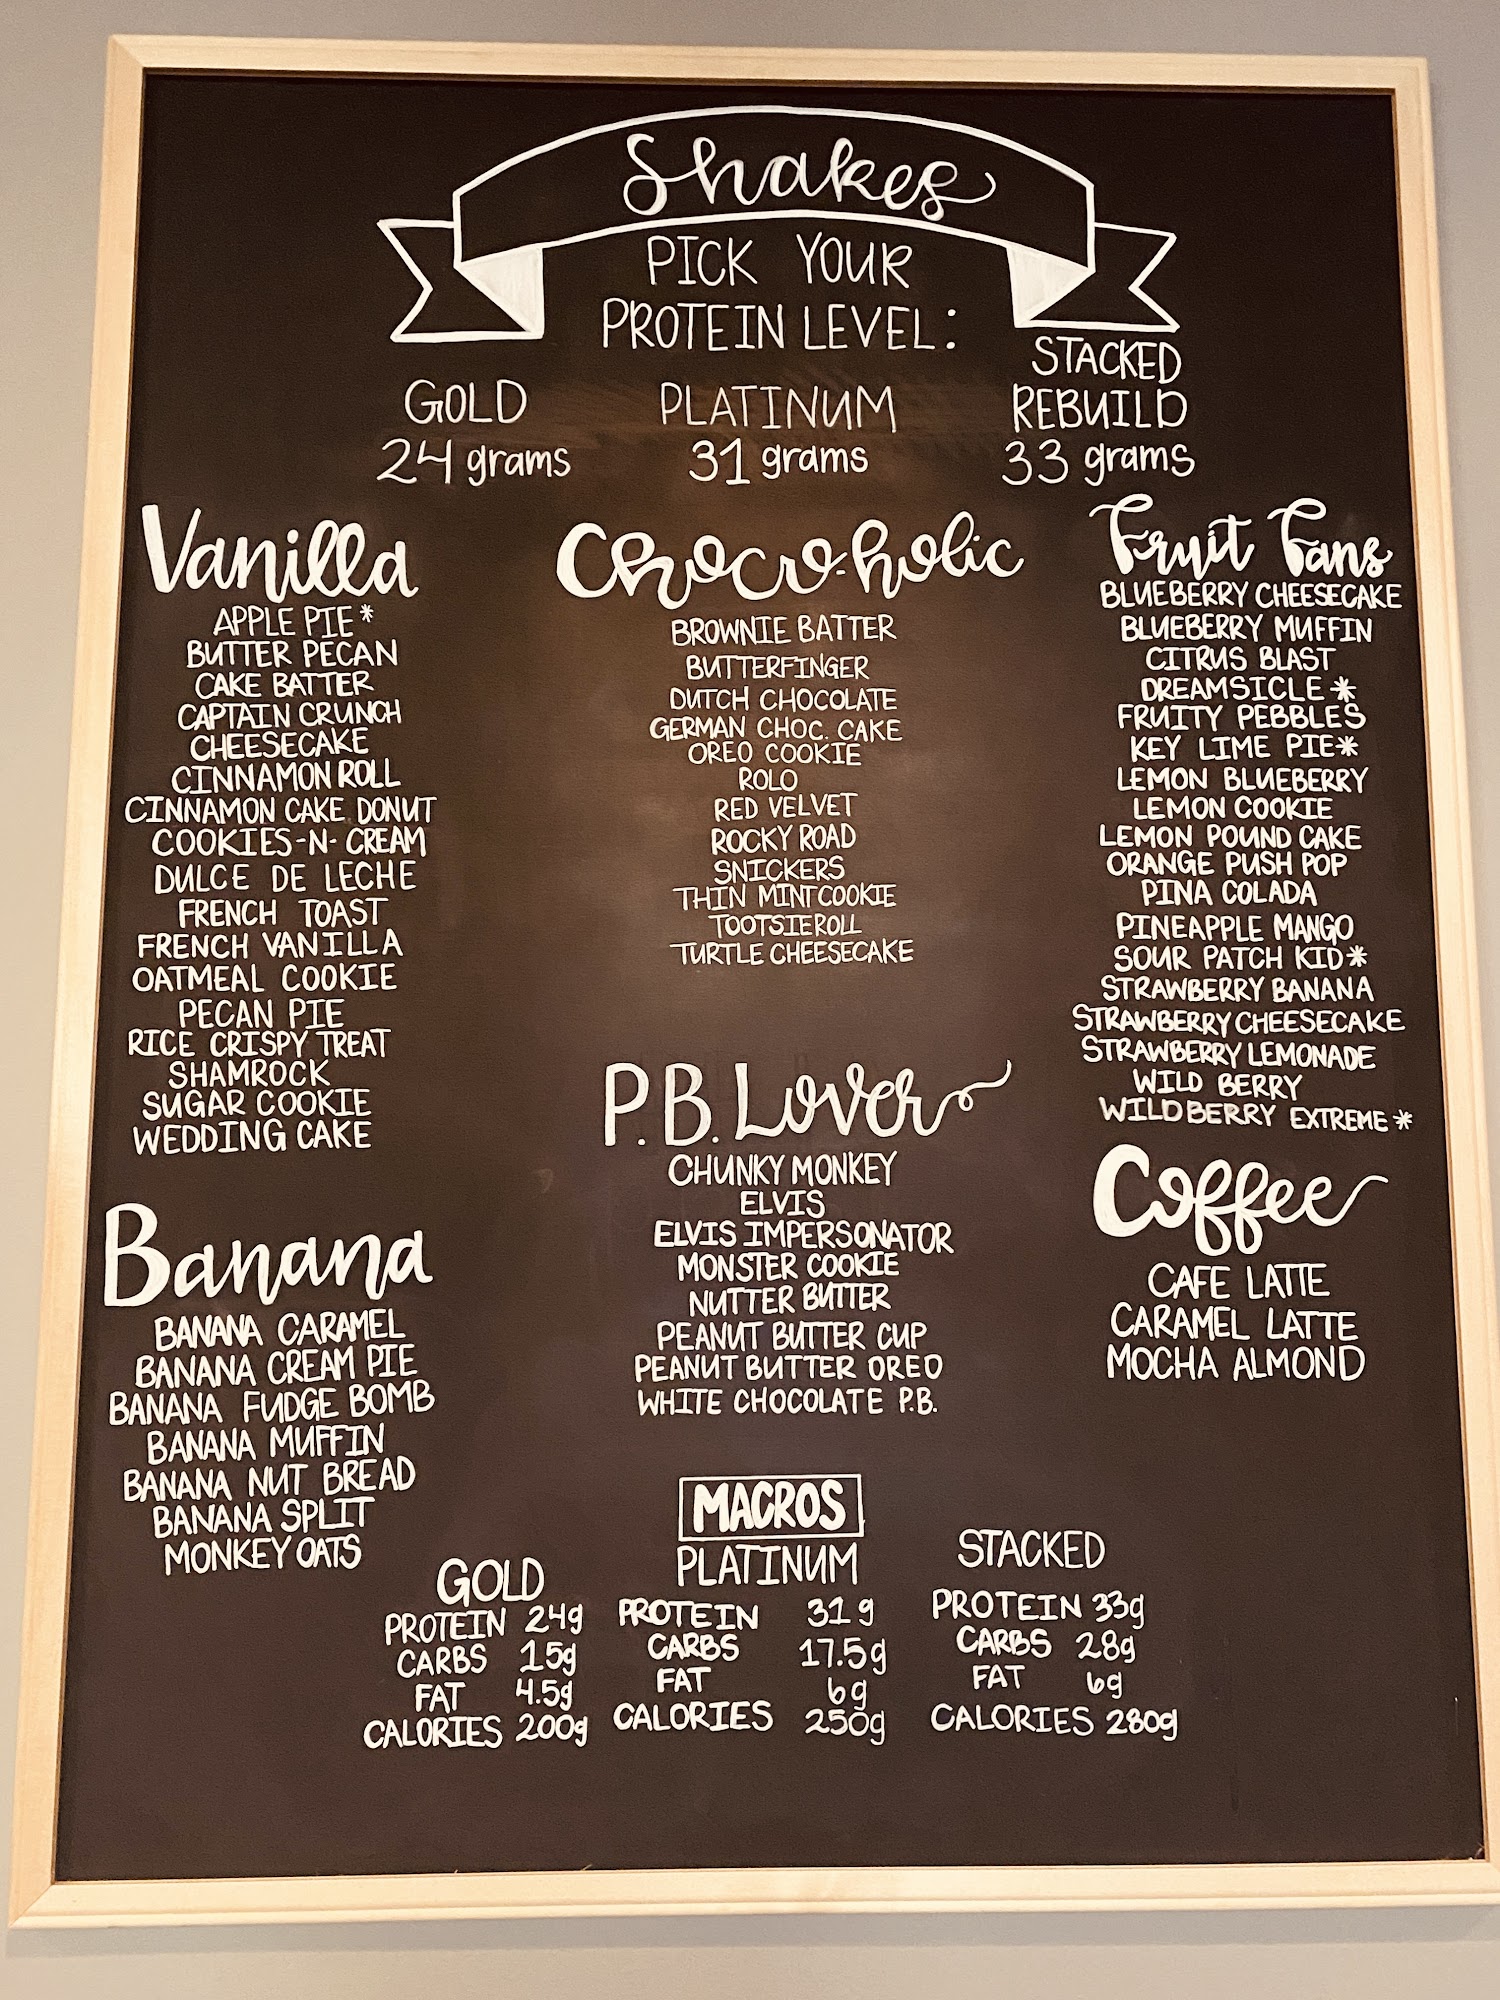 Shakes
PICK YOUR
PROTEIN LEVEL:
GOLD
24 grams
PLATINUM
31 grams
STACKED
REBUILD
33 grams
Vanilla
APPLE PIE*
BUTTER PECAN
CAKE BATTER
CAPTAIN CRUNCH
CHEESECAKE
CINNAMON ROLL
CINNAMON CAKE DONUT
COOKIES-N-CREAM
DULCE DE LECHE
FRENCH TOAST
FRENCH VANILLA
OATMEAL COOKIE
PECAN PIE
RICE CRISPY TREAT
SHAMROCK
SUGAR COOKIE
WEDDING CAKE
Banana
BANANA CARAMEL
BANANA CREAM PIE
BANANA FUDGE BOMB
BANANA MUFFIN
BANANA NUT BREAD
BANANA SPLIT
MONKEY OATS
Choco-holic
BROWNIE BATTER
BUTTERFINGER
DUTCH CHOCOLATE
GERMAN CHOC. CAKE
OREO COOKIE
ROLO
RED VELVET
ROCKY ROAD
SNICKERS
THIN MINT COOKIE
TOOTSIE ROLL
TURTLE CHEESECAKE
P.B. Lover
CHUNKY MONKEY
ELVIS
ELVIS IMPERSONATOR
MONSTER COOKIE
NUTTER BUTTER
PEANUT BUTTER CUP
PEANUT BUTTER OREO
WHITE CHOCOLATE P.B.
Fruit Fans
BLUEBERRY CHEESECAKE
BLUEBERRY MUFFIN
CITRUS BLAST
DREAMSICLE*
FRUITY PEBBLES
KEY LIME PIE*
LEMON BLUEBERRY
LEMON COOKIE
LEMON POUND CAKE
ORANGE PUSH POP
PINA COLADA
PINEAPPLE MANGO
SOUR PATCH KID*
STRAWBERRY BANANA
STRAWBERRY CHEESECAKE
STRAWBERRY LEMONADE
WILD BERRY
WILDBERRY EXTREME*
Coffee
CAFE LATTE
CARAMEL LATTE
MOCHA ALMOND
MACROS
GOLD
PROTEIN 24g
CARBS 15g
FAT 4.5g
CALORIES 200g
PLATINUM
PROTEIN 31g
CARBS 17.5g
FAT 6g
CALORIES 250g
STACKED
PROTEIN 33g
CARBS 28g
FAT 6g
CALORIES 280g